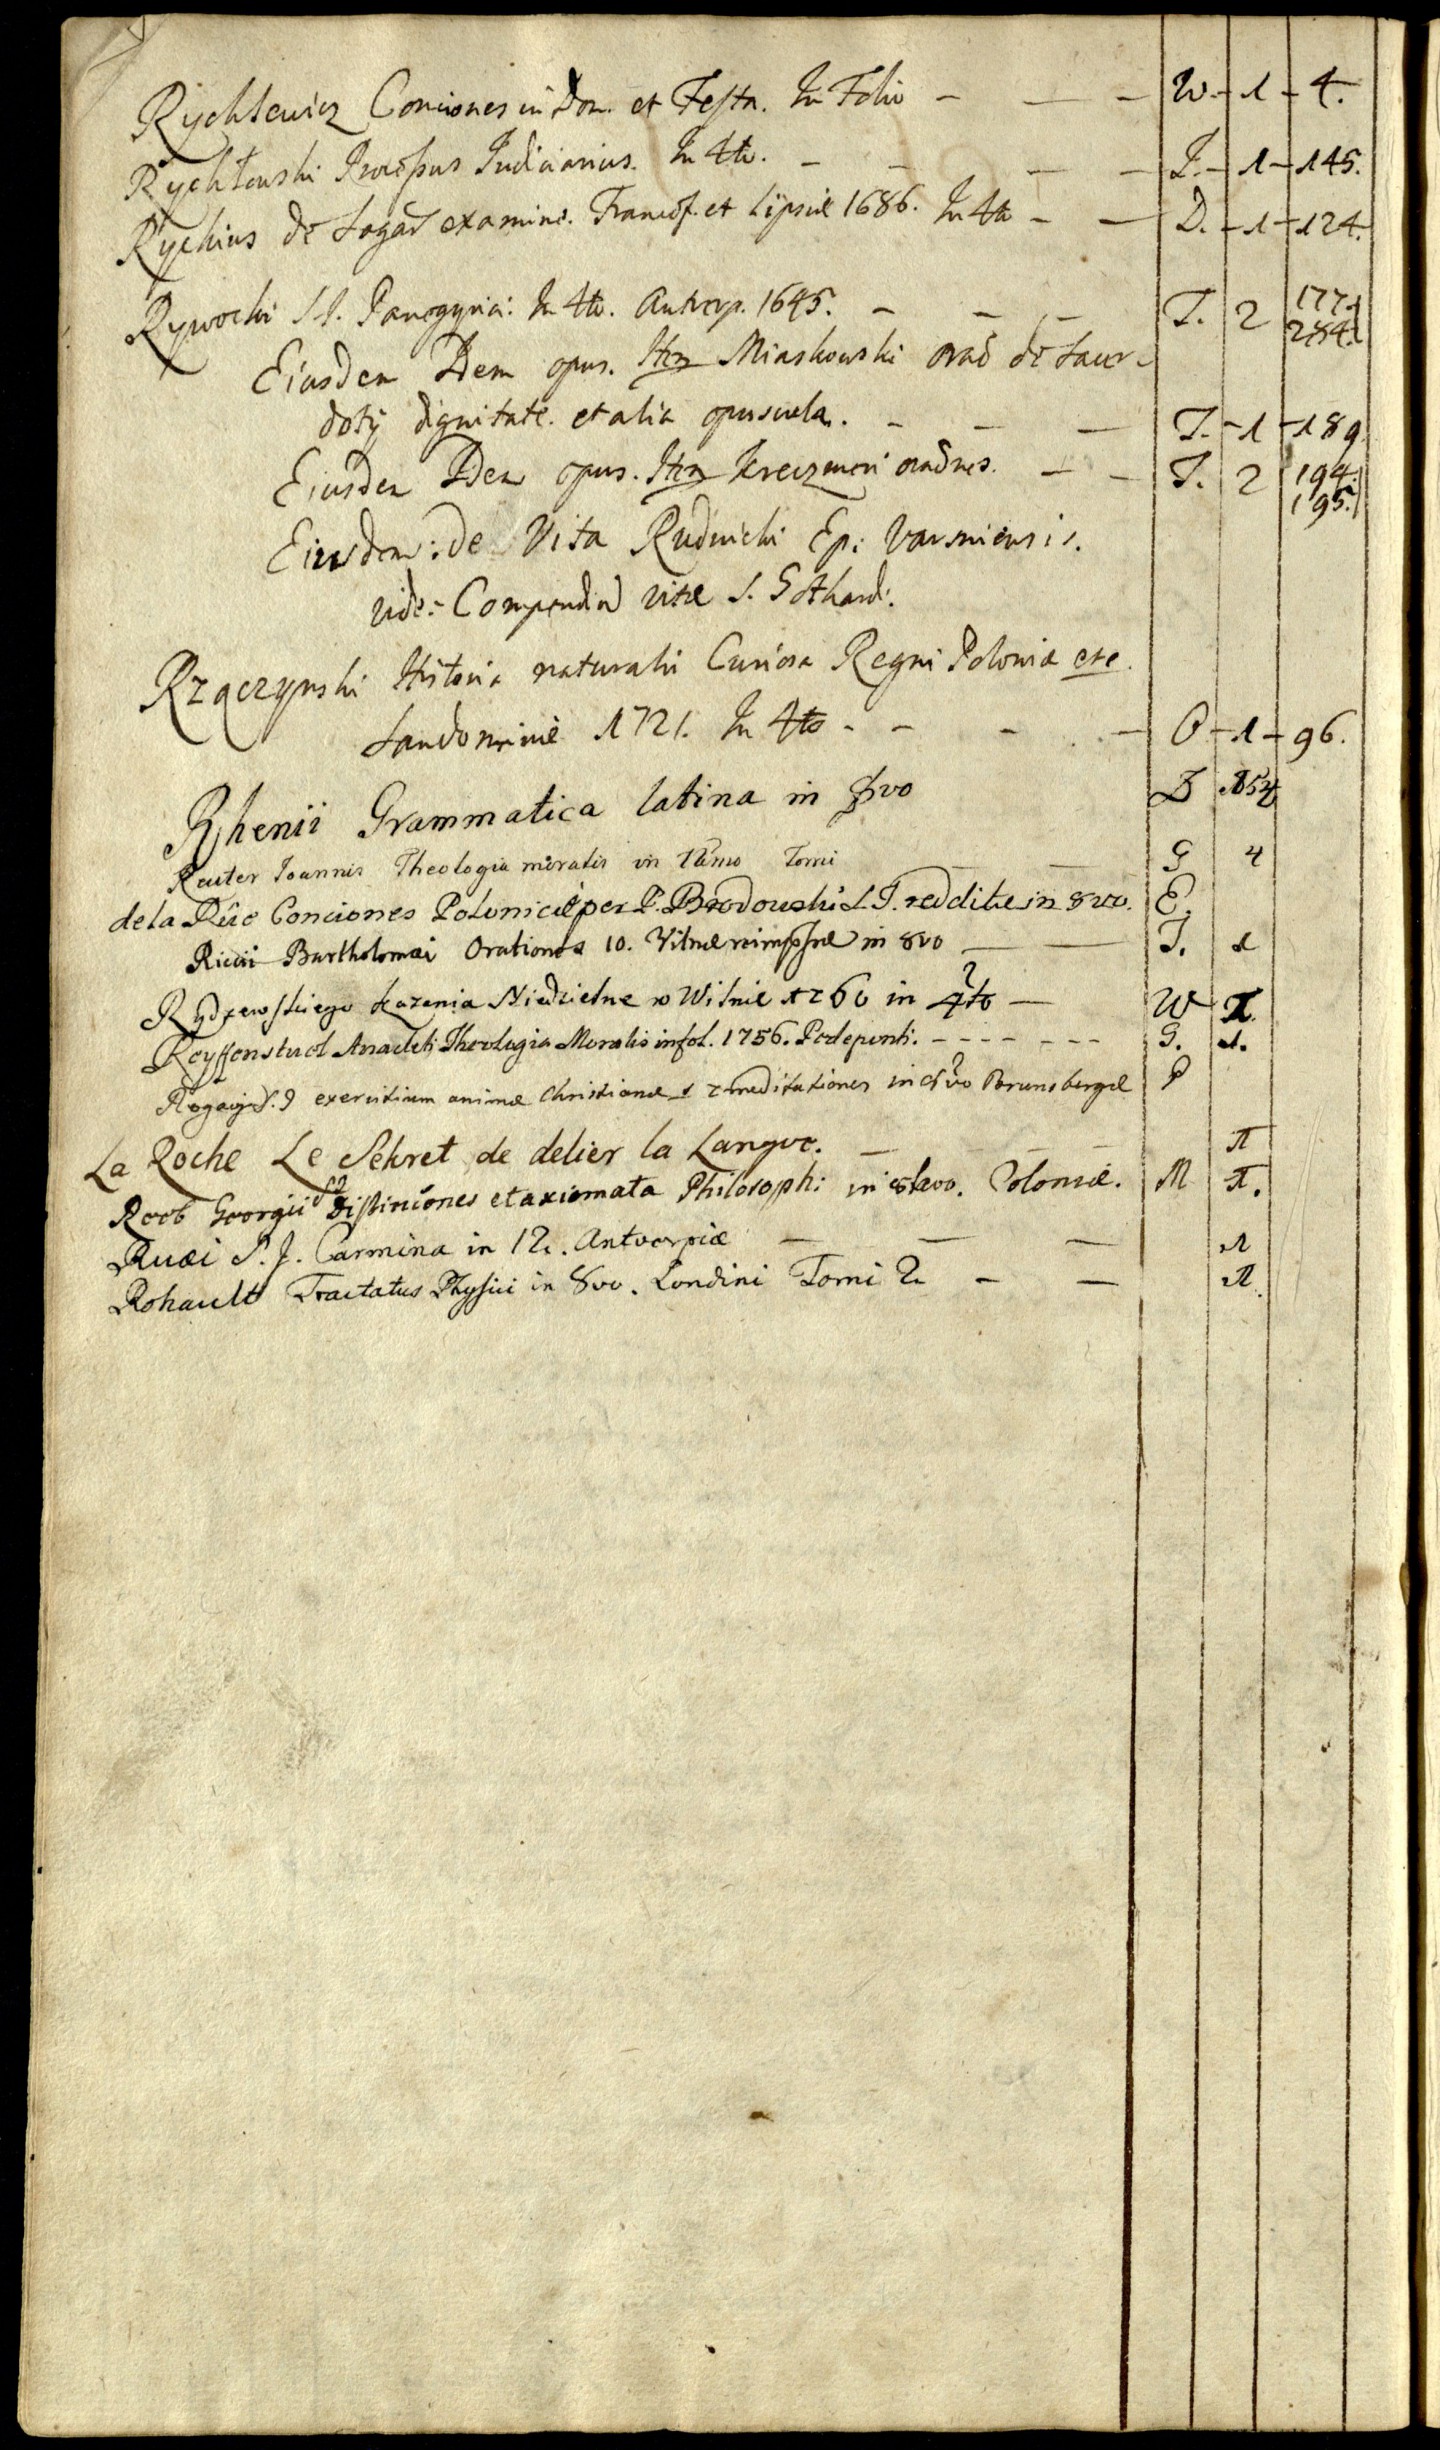 Rychlewicz Conciones in Dom. et Festa. In Folio — — — W. – 1 – 4.
Rychłowski Processus Iudiciarius. In 4to. — — — — J. – 1 – 145.
Rychius de examine. Francof. et Lipsiæ 1686. In 4to — — D. – 1 – 124.
Rywocki S.J. Panegyrici. In 4to. Antverp. 1645. — — — T. 2 177. 284.
Eiusdem Idem opus. Item Miaskowski orao de Sacer-
dotij dignitate. et alia opuscula. — — — T. – 1 – 189
Eiusdem Idem opus. Item Kreczmeri oraones. — — T. 2 194. 195.
Eiusdem: De Vita Rudnicki Epi Varmiensis.
vide: Compendiu vitæ S. Gothardi.
Rzączynski Historia naturalis Curiosa Regni Poloniæ etc.
Sandomiriæ 1721. In 4to – – – – O – 1 – 96.
Rhenii Grammatica latina in 8vo
Reuter Ioannis Theologia moralis in Tomi — — G 4
de la Rüe Conciones Polonicæ per P. Brodowski S.J. redditæ in 8vo. E.
Ricii Bartholomæi Orationes 10. Vilnæ reimpssæ in 8vo — — T. 1
Rydzewskiego Kazania Niedzielne w Wilnie 1760 in 4to — W
Reyffenstuel Anacleti Theologia Moralis in fol. 1756. Pedeponti. – – – – – – – G. 1.
Rogacij S.J exercitium animæ Christianæ meditationes in 8vo Brunsbergæ P
La Roche Le Sekret de delier la Langue. — — 1
Roob Georgii Distinciones et axiomata Philosoph: in 8tavo. Coloniæ. M 1.
Ruæi S.J. Carmina in 12. Antverpiæ — — — 1
Rohault Tractatus Physici in 8vo. Londini Tomi 2 — — 1.